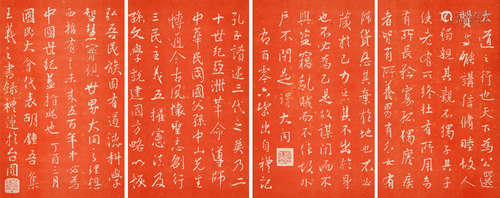 大道之行也天下為公選
賢與能講信修睦故人
不獨親其親不獨子其子
使老有所終壯有所用
有所長矜寡孤獨廢疾
者皆有所養男有分女有
歸貨惡其棄於地也不必
藏於己力惡其不出於身
也不必為己是故謀閉而不
興盜竊亂賊而不作故外
戶不閉是謂大同
百零六 出自禮記
孔子 述三代之英乃二
十世紀亞洲革命導師
中華民國國父孫中山先生
博通今古夙懷聖
三民主義五權憲法與
孫文學說建國方略以恢
弘吾民族固有道德科學
智慧 世界大同之理想
西哲有言未來五百年必為
中國世紀 丁酉三月
國民大會代表胡鍾吾集
王羲之書